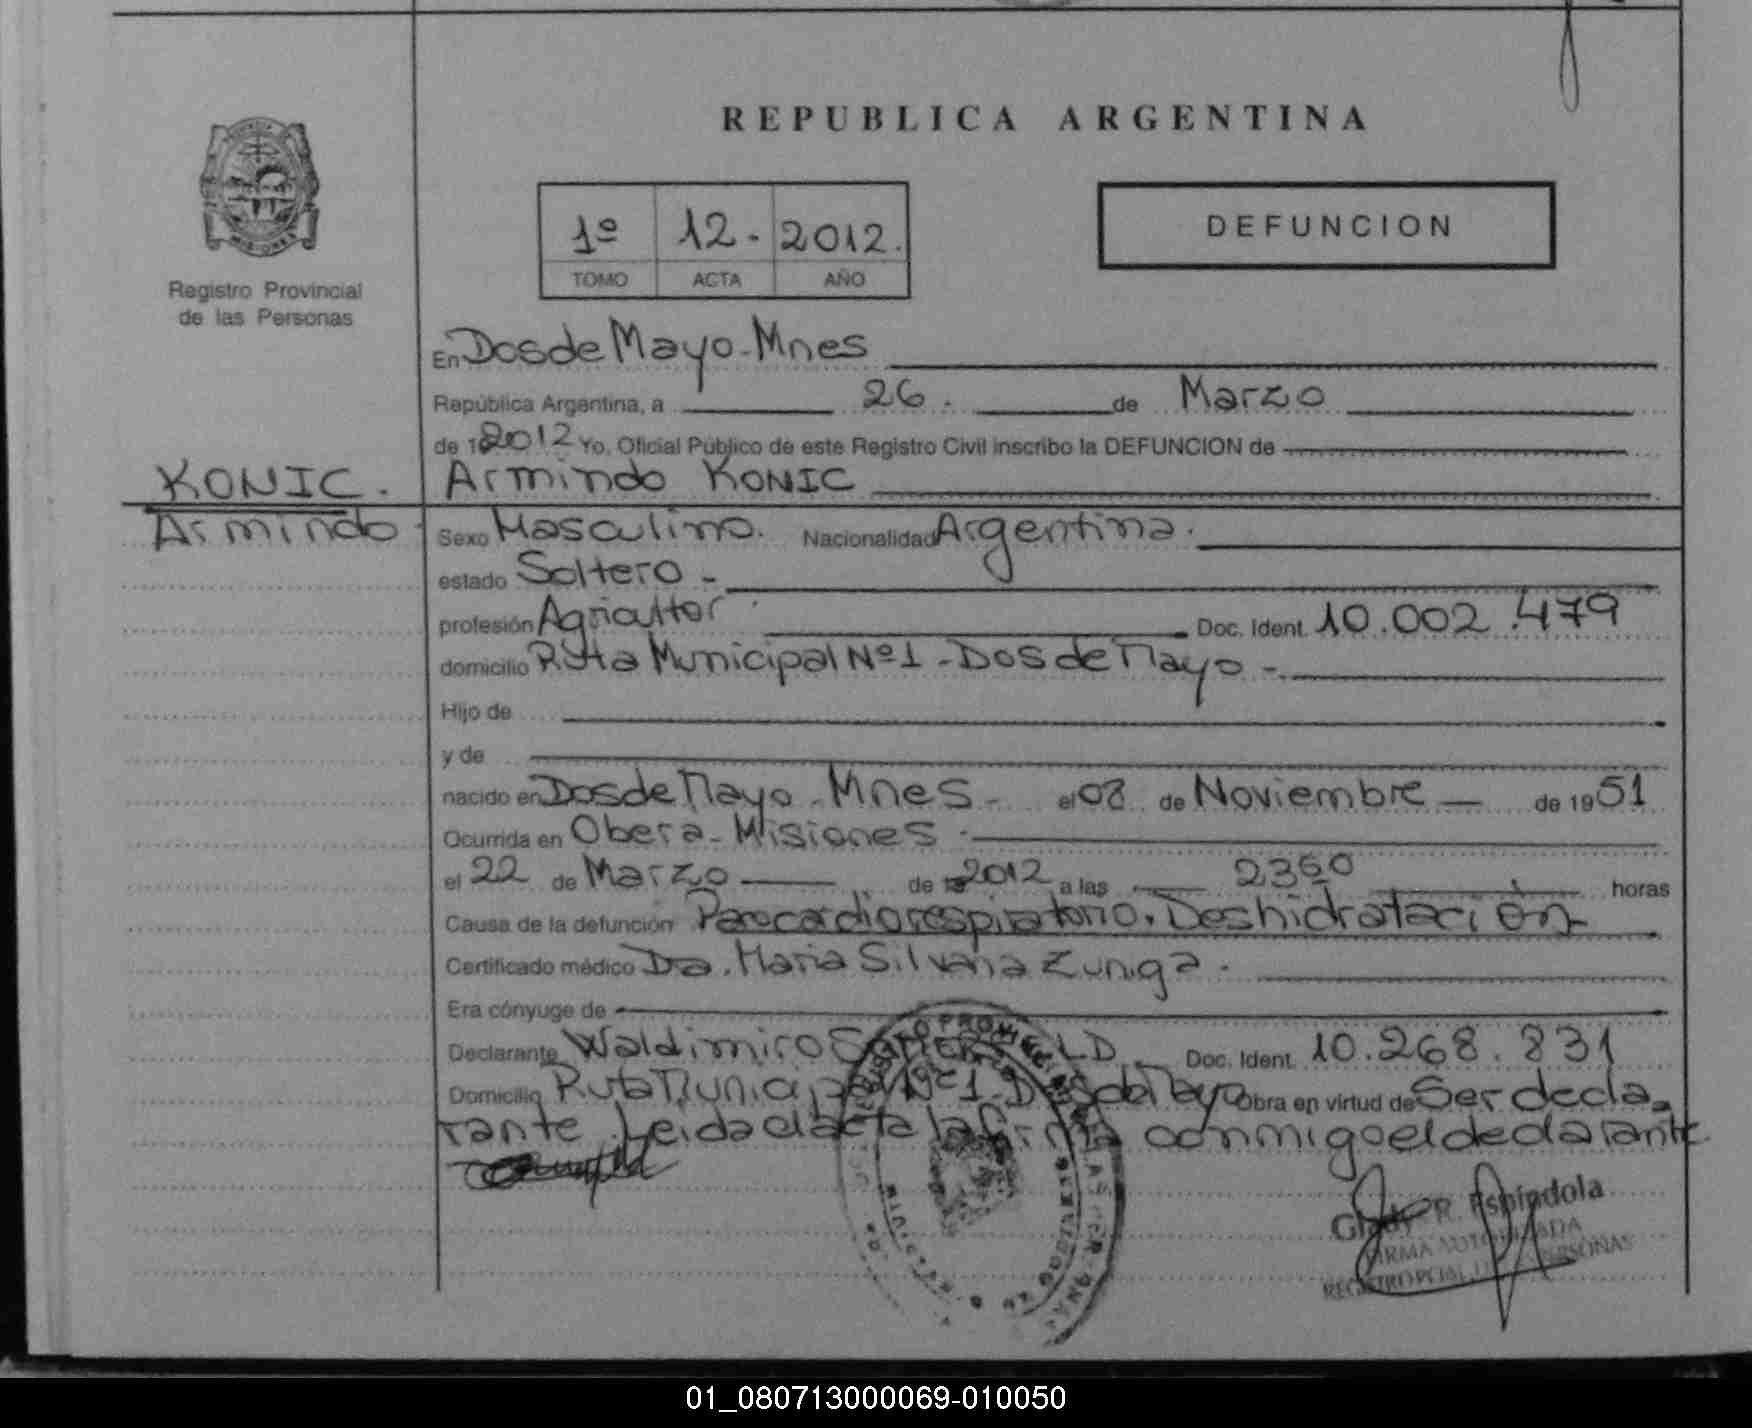 REPUBLICA ARGENTINA
1º 12. 2012.
TOMO ACTA AÑO
DEFUNCION
MISIONES
Registro Provincial
de las Personas
En Dos de Mayo - Mnes
República Argentina, a 26. de Marzo
de 2012 Yo, Oficial Público de este Registro Civil inscribo la DEFUNCION de
KONIC. Armindo KONIC
Armindo
Sexo Masculino. Nacionalidad Argentina.
estado Soltero -
profesión Agricultor Doc. Ident. 10.002.479
domicilio Ruta Municipal Nº1 - Dos de Mayo -
Hijo de
y de
nacido en Dos de Mayo - Mnes - el 08 de Noviembre de 1951
Ocurrida en Obera - Misiones
el 22 de Marzo de 2012 a las horas
Causa de la defunción Paro cardiorespiratorio. Deshidratación
Certificado médico Dra. Maria Silvana Zuniga.
Era cónyuge de
Declarante Waldimiro Doc. Ident. 10.268.831
Domicilio Ruta Municipal Nº1 - Dos de Mayo Obra en virtud de Ser decla-
rante. Leida el acta la firma conmigo el declarante
R. Espindola
FIRMA AUTORIZADA
REGISTRO PCIAL. PERSONAS
01_080713000069-010050